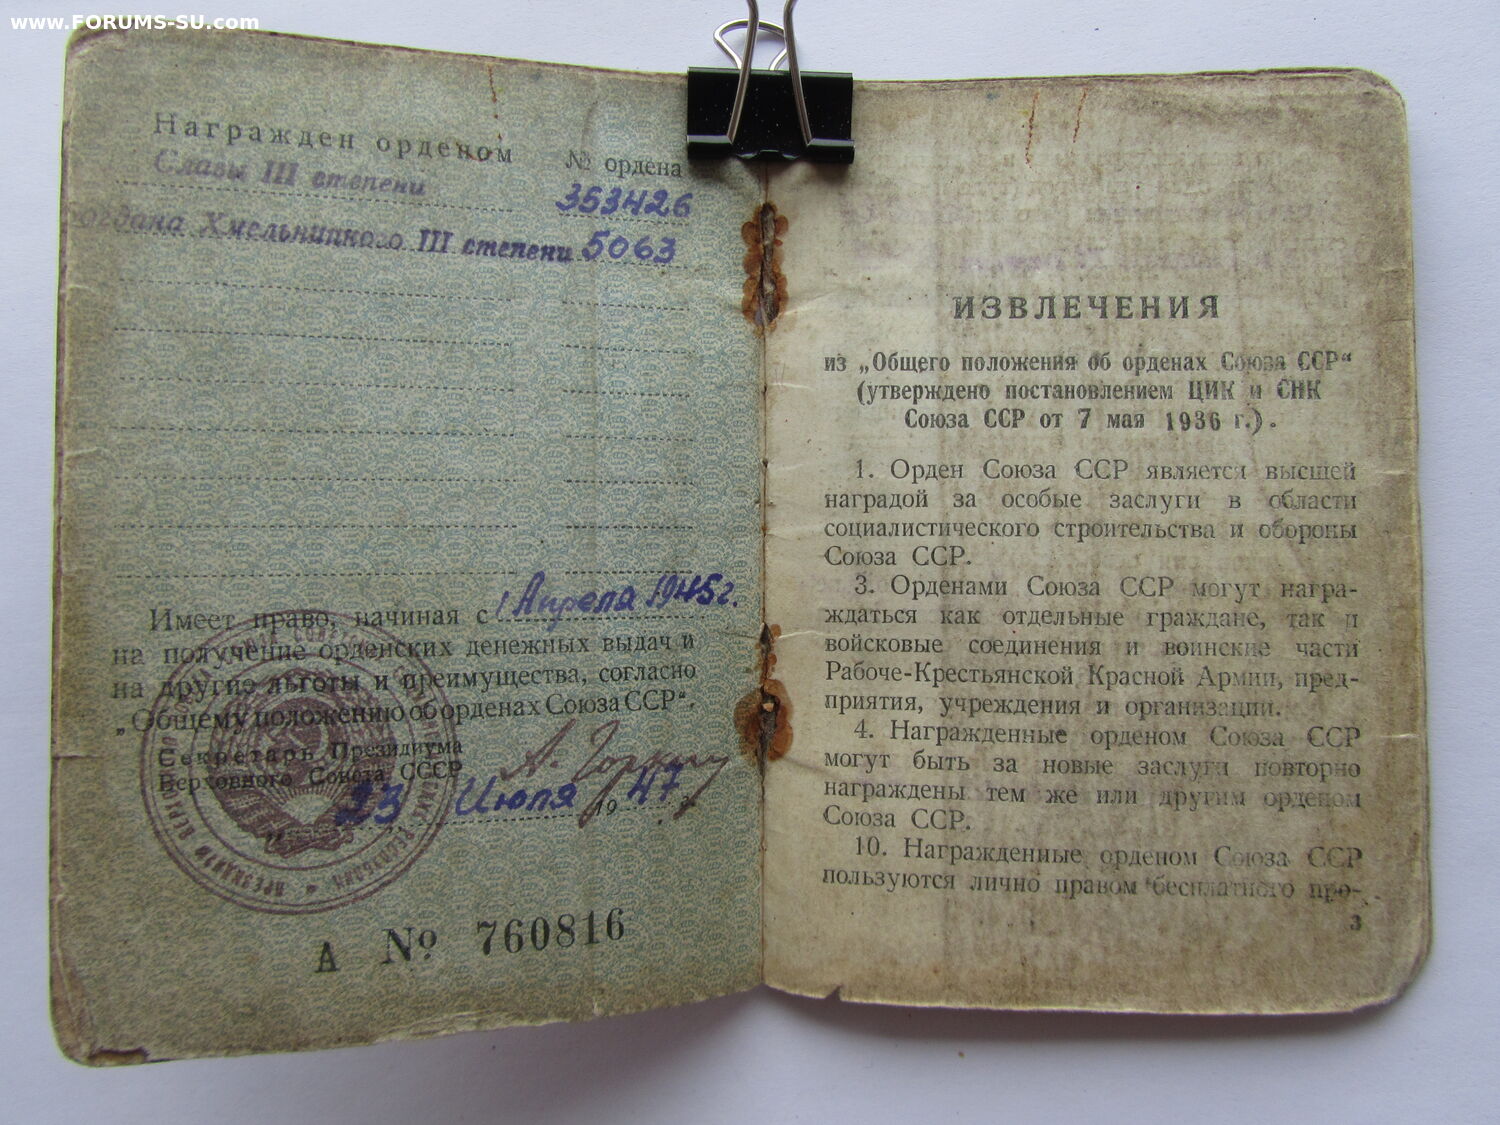 www.FORUMS-SU.com
Награжден орденом № ордена
Славы III степени 353426
огдана Хмельницкого III степени 5063
Имеет право, начиная с 1 Апреля 1945 г.
на получение орденских денежных выдач и
на другие льготы и преимущества, согласно
„Общему положению об орденах Союза ССР“.
Секретарь Президиума
Верховного Совета СССР А. Горкин
„23 Июля 1947 г.
А № 760816
ИЗВЛЕЧЕНИЯ
из „Общего положения об орденах Союза ССР“
(утверждено постановлением ЦИК и СНК
Союза ССР от 7 мая 1936 г.).
1. Орден Союза ССР является высшей
наградой за особые заслуги в области
социалистического строительства и обороны
Союза ССР.
3. Орденами Союза ССР могут награ-
ждаться как отдельные граждане, так и
войсковые соединения и воинские части
Рабоче-Крестьянской Красной Армии, пред-
приятия, учреждения и организации.
4. Награжденные орденом Союза ССР
могут быть за новые заслуги повторно
награждены тем же или другим орденом
Союза ССР.
10. Награжденные орденом Союза ССР
пользуются лично правом бесплатного про-
3